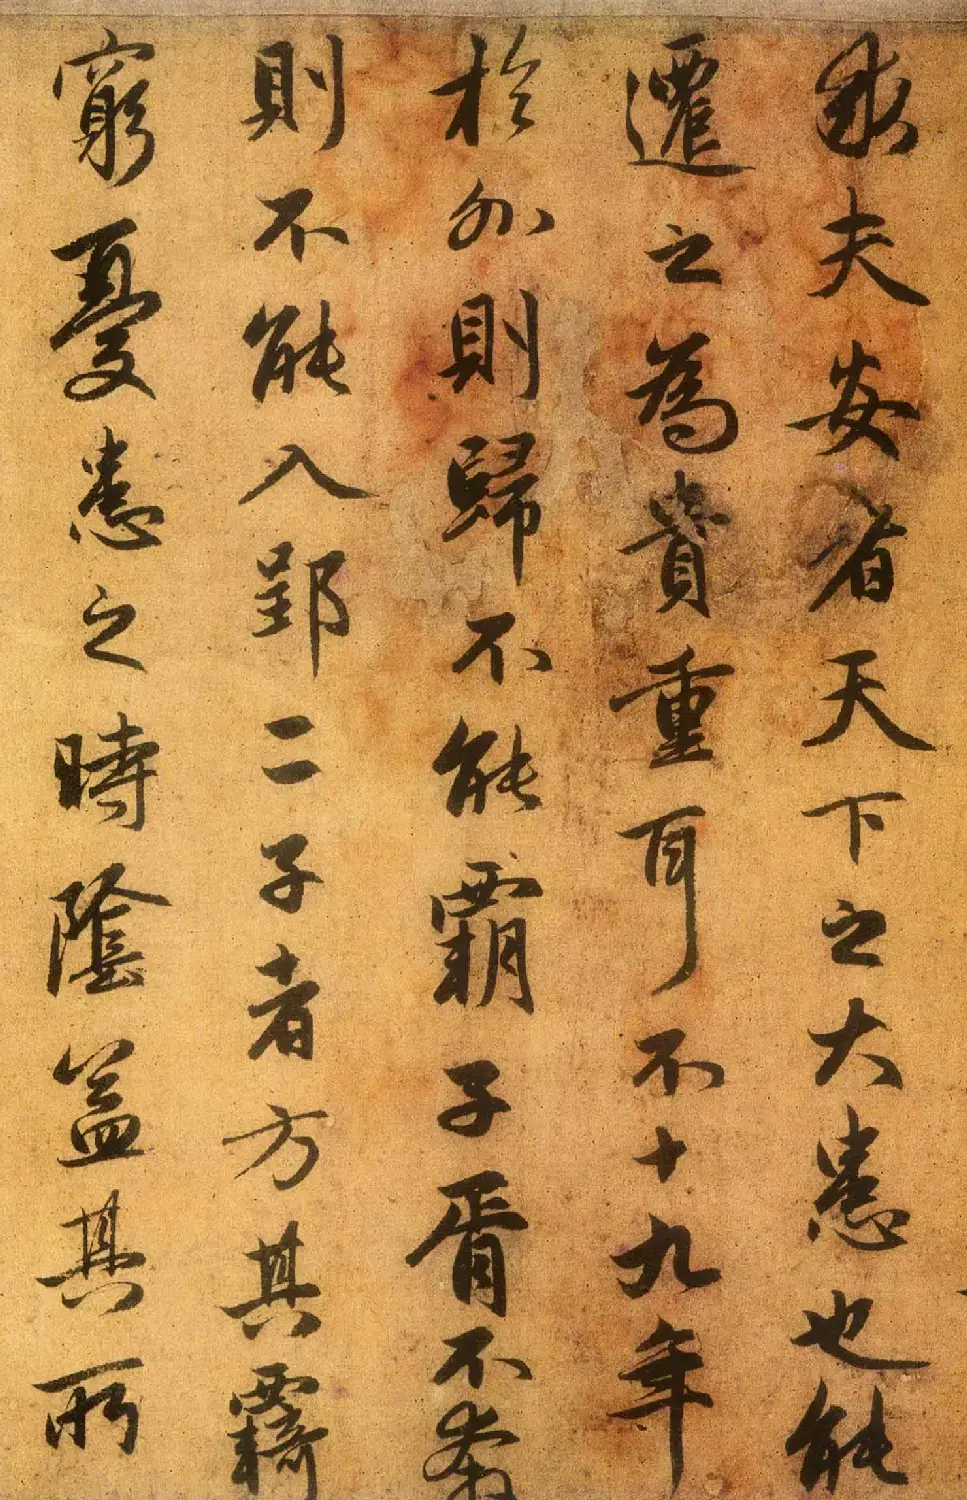 求夫安者天下之大患也能
遷之為貴重耳不十九年
於外則歸不能覇子胥不奔
則不能入郢二子者方其覉
窮憂患之時陰益其所